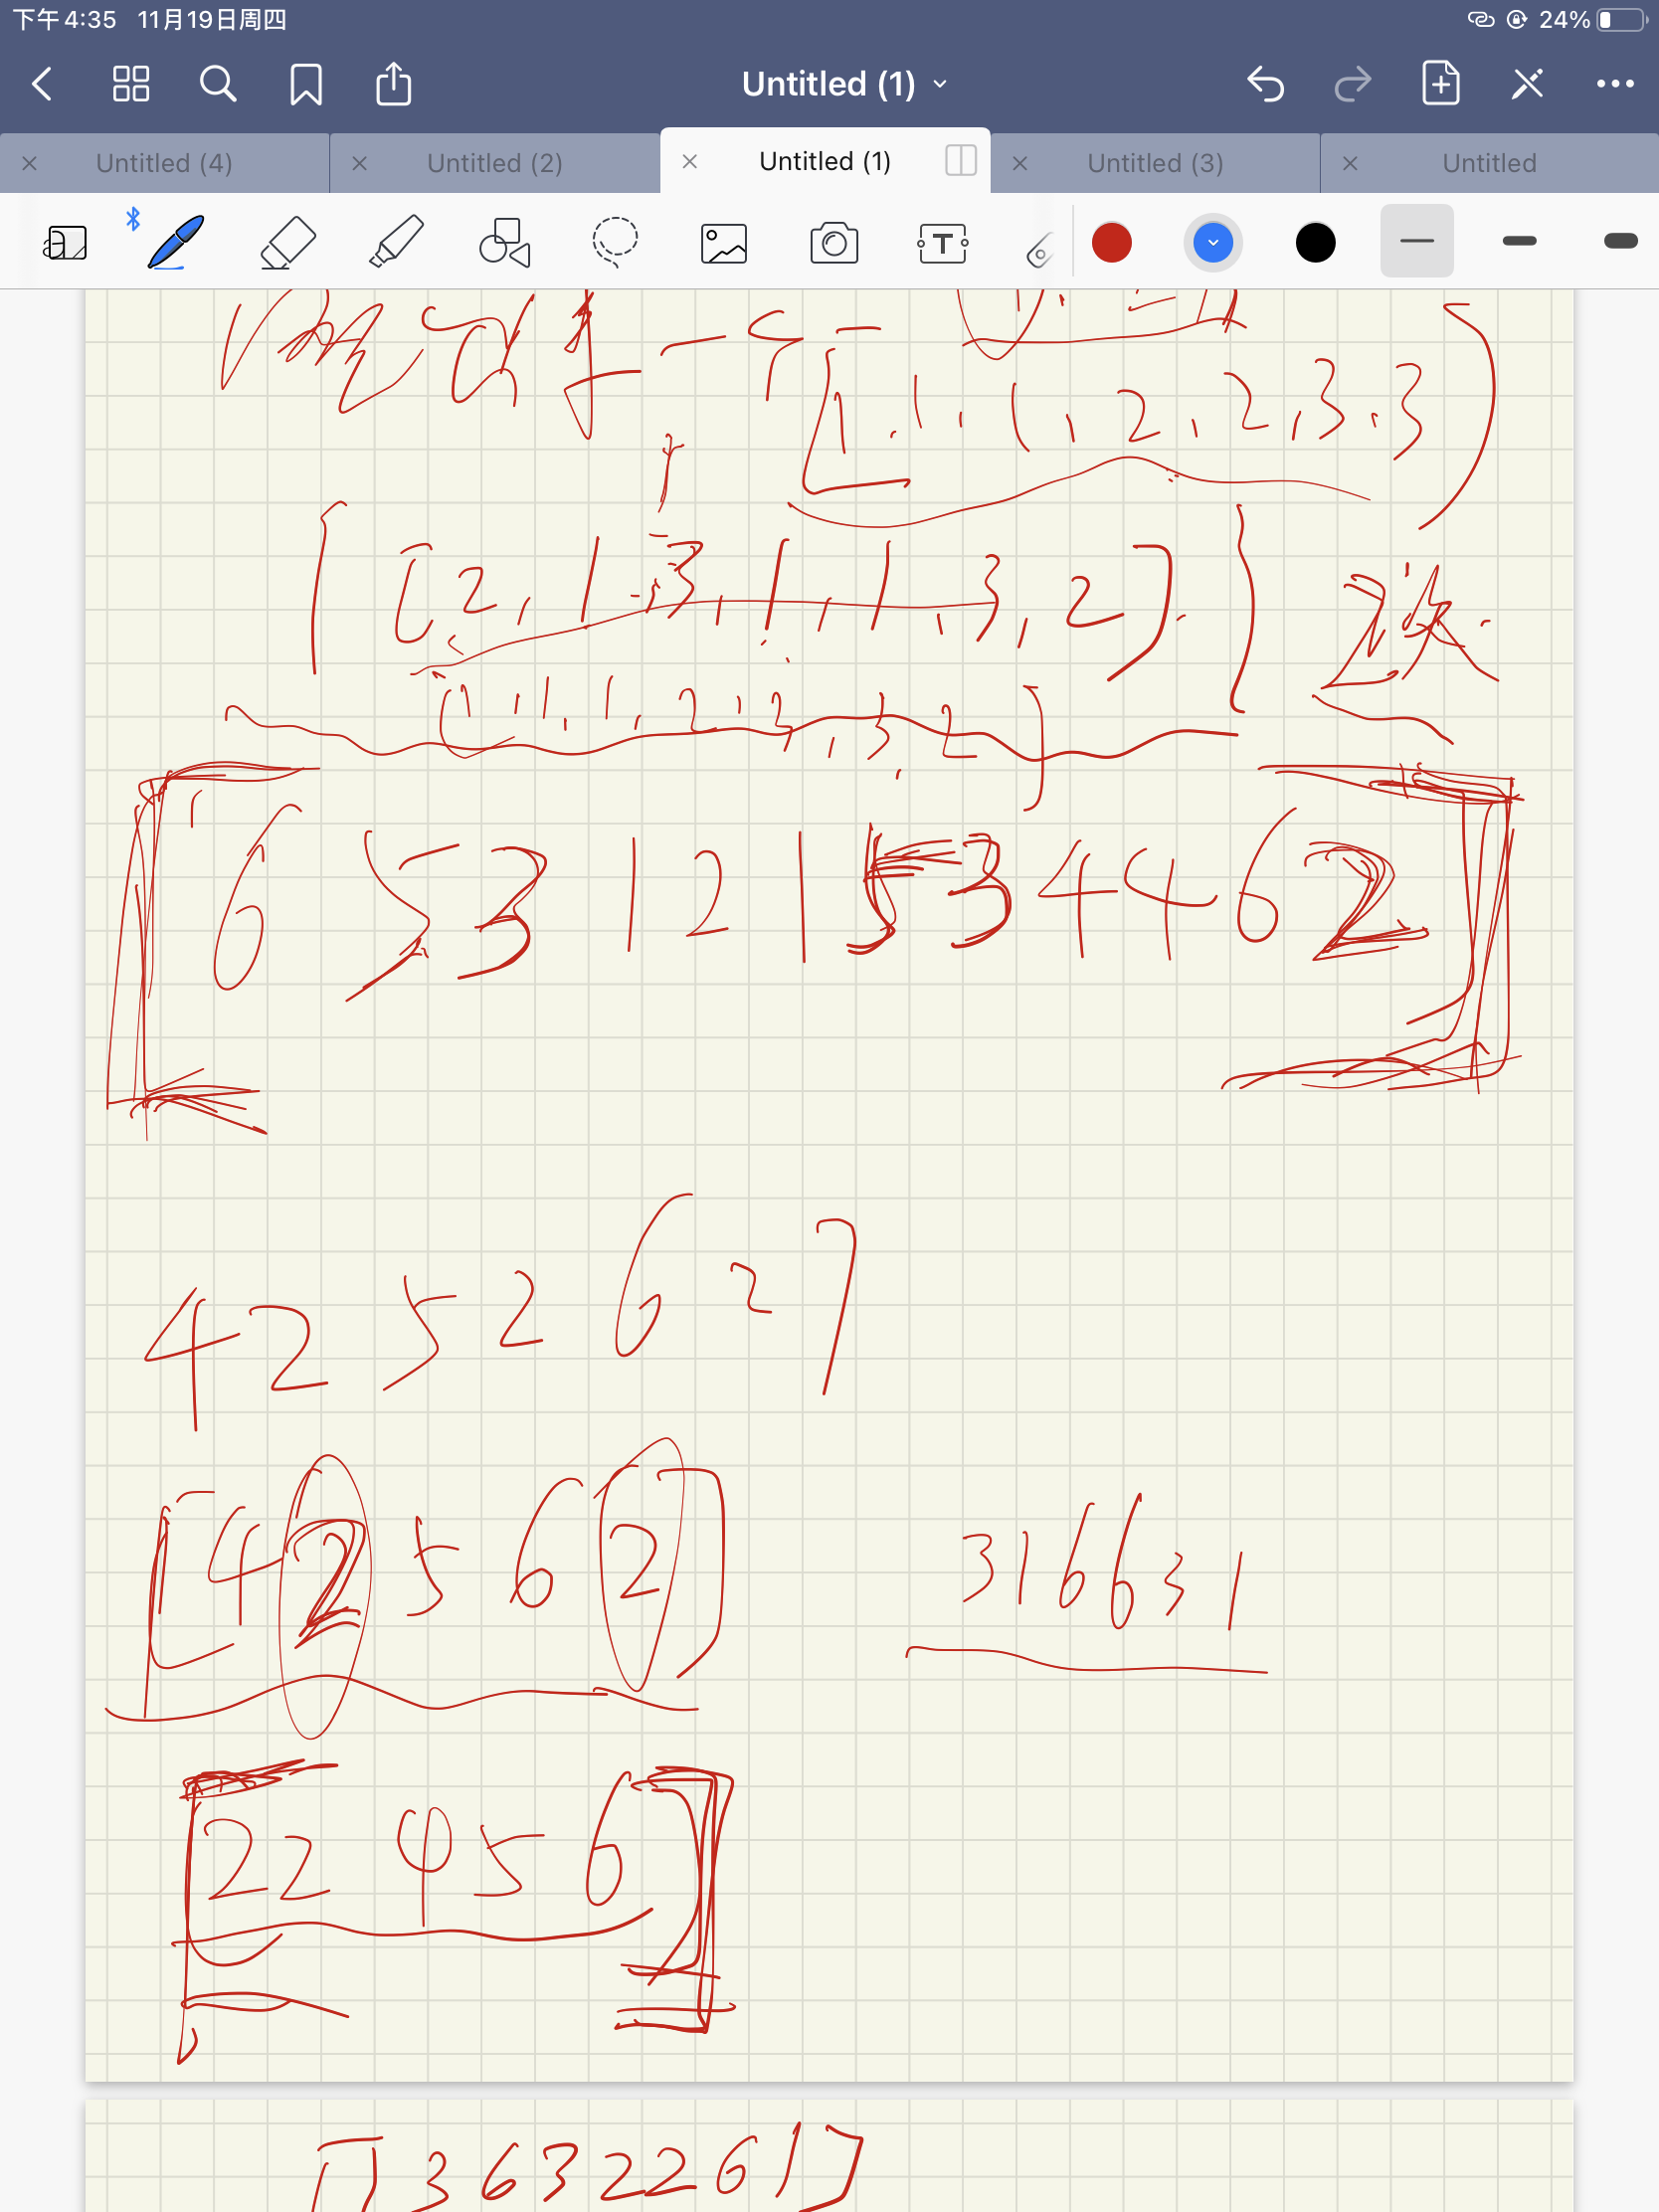 下午4:35 11月19日周四 24%
Untitled (1)
Untitled (4) Untitled (2) Untitled (1) Untitled (3) Untitled
T
[1, 1, 1, 2, 2, 3, 3
[2, 1, 3, 1, 1, 3, 2]
1, 1, 1, 2, 2, 3, 2]
6 5 3 1 2 1 5 3 4 4 6 2
4 2 5 2 6 2 7
[4 2 5 6 2]
3 1 6 6 3 1
[2 2 4 5 6]
3 6 3 2 2 6 1]